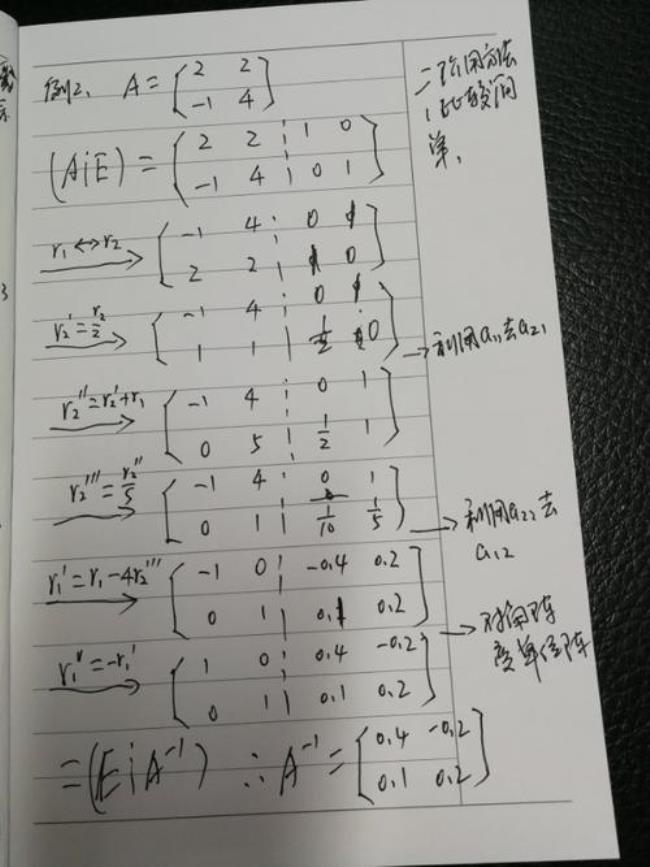 例2、 A = [2 2
-1 4]
二阶用方法
1比较简
单,
(A¦E) = [2 2 ¦ 1 0
-1 4 ¦ 0 1]
r₁ ↔ r₂ [-1 4 ¦ 0 1
2 2 ¦ 1 0]
r₂' = r₂/2 [-1 4 ¦ 0 1
1 1 ¦ 1/2 0]
→ 利用a₁₁去a₂₁
r₂'' = r₂' + r₁ [-1 4 ¦ 0 1
0 5 ¦ 1/2 1]
r₂''' = r₂''/5 [-1 4 ¦ 0 1
0 1 ¦ 1/10 1/5]
→ 利用a₂₂去
a₁₂
r₁' = r₁ - 4r₂''' [-1 0 ¦ -0.4 0.2
0 1 ¦ 0.1 0.2]
→ 对角阵
变单位阵
r₁'' = -r₁' [1 0 ¦ 0.4 -0.2
0 1 ¦ 0.1 0.2]
= (E¦A⁻¹) ∴ A⁻¹ = [0.4 -0.2
0.1 0.2]